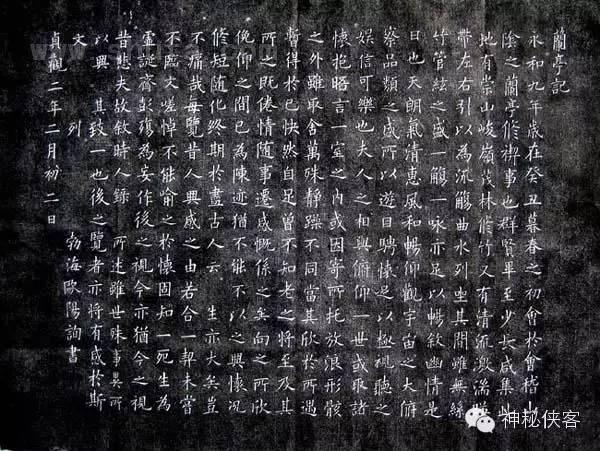 蘭亭記
永和九年歲在癸丑暮春之初會於會稽山
陰之蘭亭修禊事也群賢畢至少長咸集此
地有崇山峻嶺茂林修竹又有清流激湍暎
帶左右引以為流觴曲水列坐其間雖無絲
竹管絃之盛一觴一咏亦足以暢敘幽情是
日也天朗氣清惠風和暢仰觀宇宙之大俯
察品類之盛所以遊目騁懷足以極視聽之
娛信可樂也夫人之相與俯仰一世或取諸
懷抱晤言一室之內或因寄所托放浪形骸
之外雖取舍萬殊靜躁不同當其欣於所遇
暫得於己快然自足曾不知老之將至及其
所之既倦情隨事遷感慨係之矣向之所欣
俛仰之間已為陳迹猶不能不以之興懷況
修短隨化終期於盡古人云 生亦大矣豈
不痛哉每覽昔人興感之由若合一契未嘗
不臨文嗟悼不能喻之於懷固知一死生為
虛誕齊彭殤為妄作後之視今亦猶今之視
昔悲夫故敘時人錄 所述雖世殊事異所
以興 其致一也後之覽者亦將有感於斯
文 列 勃海歐陽詢書
貞觀二年二月初二日
神秘侠客